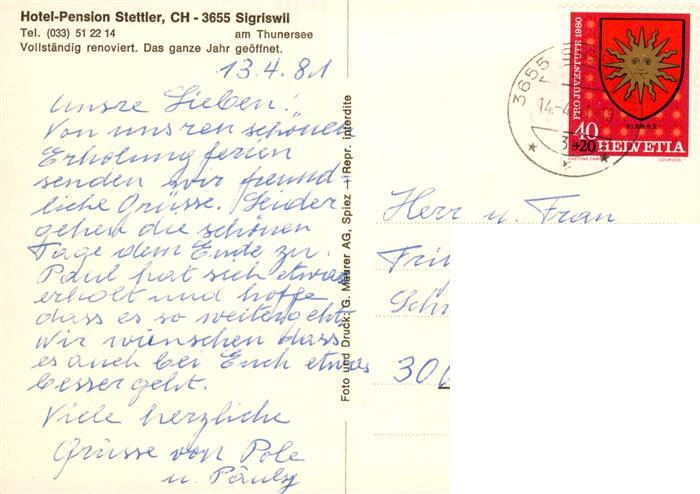 Hotel-Pension Stettler, CH - 3655 Sigriswil
Tel. (033) 51 22 14 am Thunersee
Vollständig renoviert. Das ganze Jahr geöffnet.
13.4.81
Unsre Lieben!
Von unsren schönen
Erholungsferien
senden wir freund-
liche Grüsse. Leider
gehen die schönen
Tage dem Ende zu.
Paul hat sich etwas
erholt und hoffe
dass es so weitergeht.
Wir wünschen dass
es auch bei Euch etwas
besser geht.
Viele herzliche
Grüsse von Pole
u. Pauly
Foto und Druck: G. Maurer AG, Spiez + Repr. interdite
3655
14.-4.
PRO JUVENTUTE 1980
40
+20 HELVETIA
COURVOISIER
Herr u. Frau
Fri
Sch
300